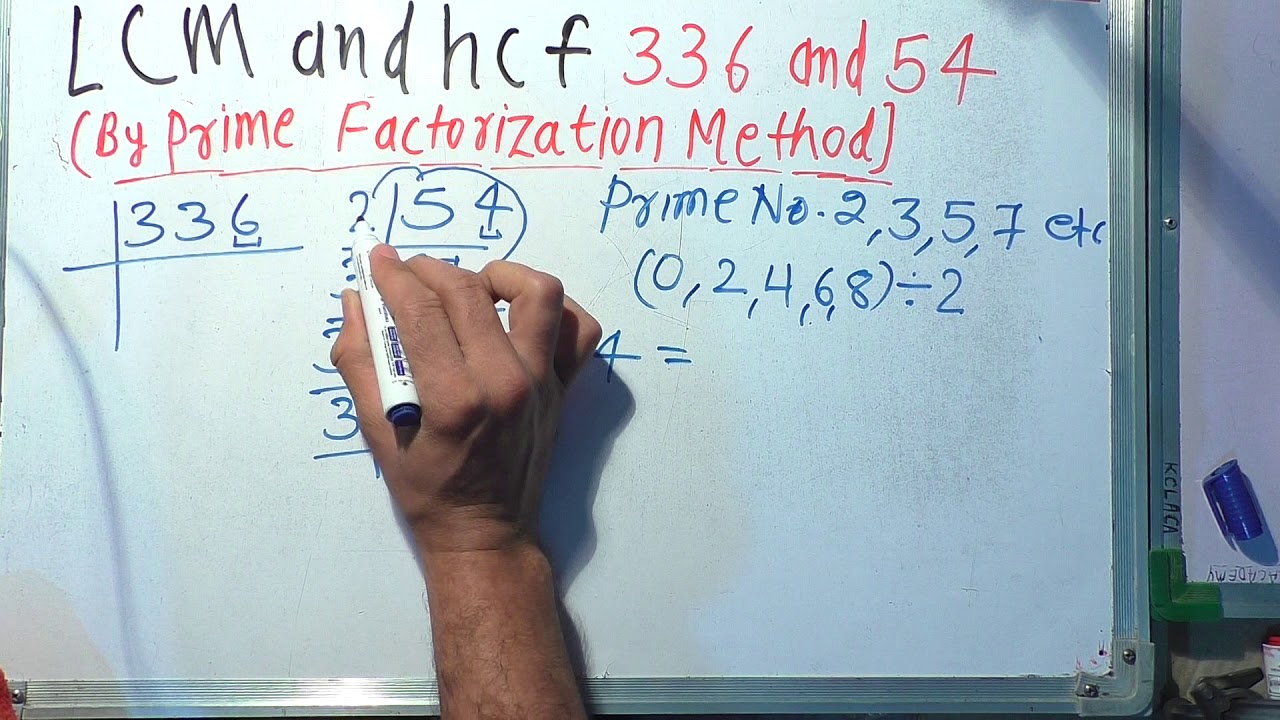 LCM and hcf 336 and 54
(By Prime Factorization Method]
336
2 54
Prime No. 2, 3, 5, 7 etc
(0, 2, 4, 6, 8) ÷ 2
4 =
3
KCLACA
ACADEMY